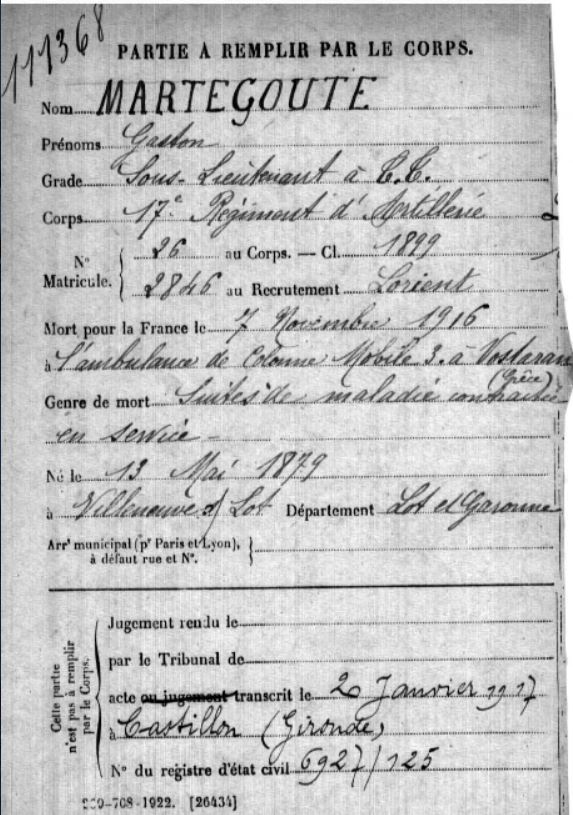 111368
PARTIE A REMPLIR PAR LE CORPS.
Nom MARTEGOUTE
Prénoms Gaston
Grade Sous-Lieutenant à T.T.
Corps 17e Régiment d'Artillerie
N° Matricule. { 26 au Corps. — Cl. 1899
2846 au Recrutement Lorient
Mort pour la France le 7 Novembre 1916
à l'ambulance de Colonne Mobile 3. à Vostaran
(Grèce)
Genre de mort Suites de maladie contractée
en service -
Né le 13 Mai 1879
à Villeneuve s/ Lot Département Lot et Garonne
Arrt municipal (pr Paris et Lyon), }
à défaut rue et N°.
Cette partie n'est pas à remplir par le Corps. {
Jugement rendu le
par le Tribunal de
acte ou jugement transcrit le 20 Janvier 1917
à Castillon (Gironde)
N° du registre d'état civil 6927/125
708-1922. [26434]